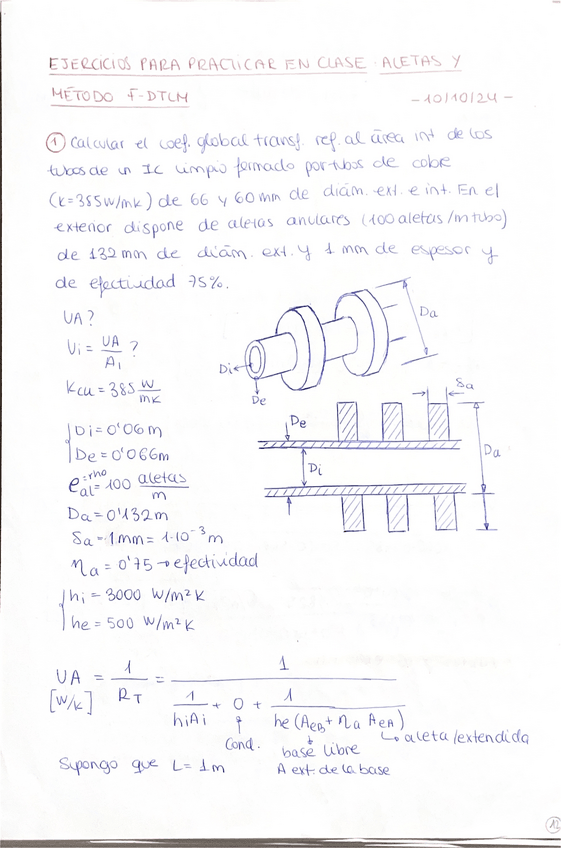 EJERCICIOS PARA PRACTICAR EN CLASE. ALETAS Y
MÉTODO F-DTLM
-10/10/24-
① Calcular el coef. global transf. ref. al área int de los
tubos de un IC limpio formado por tubos de cobre
(K=385W/mK) de 66 y 60 mm de diám. ext. e int. En el
exterior dispone de aletas anulares (100 aletas/m tubo)
de 132 mm de diám. ext. y 1 mm de espesor y
de efectividad 75%.
UA?
Ui = UA/Ai ?
Kcu = 385 W/mK
Di = 0'06 m
De = 0'066m
ρal = 100 aletas/m
=rho
Da = 0'132m
δa = 1mm = 1·10⁻³ m
ηa = 0'75 → efectividad
hi = 3000 W/m²K
he = 500 W/m²K
Di
De
Da
De
Di
δa
Da
UA = 1/RT = 1/(1/hiAi + 0 + 1/he(AeB + ηa AeA))
[W/K]
Cond.
base libre
A ext. de la base
↳ aleta/extendida
Supongo que L = 1m
12